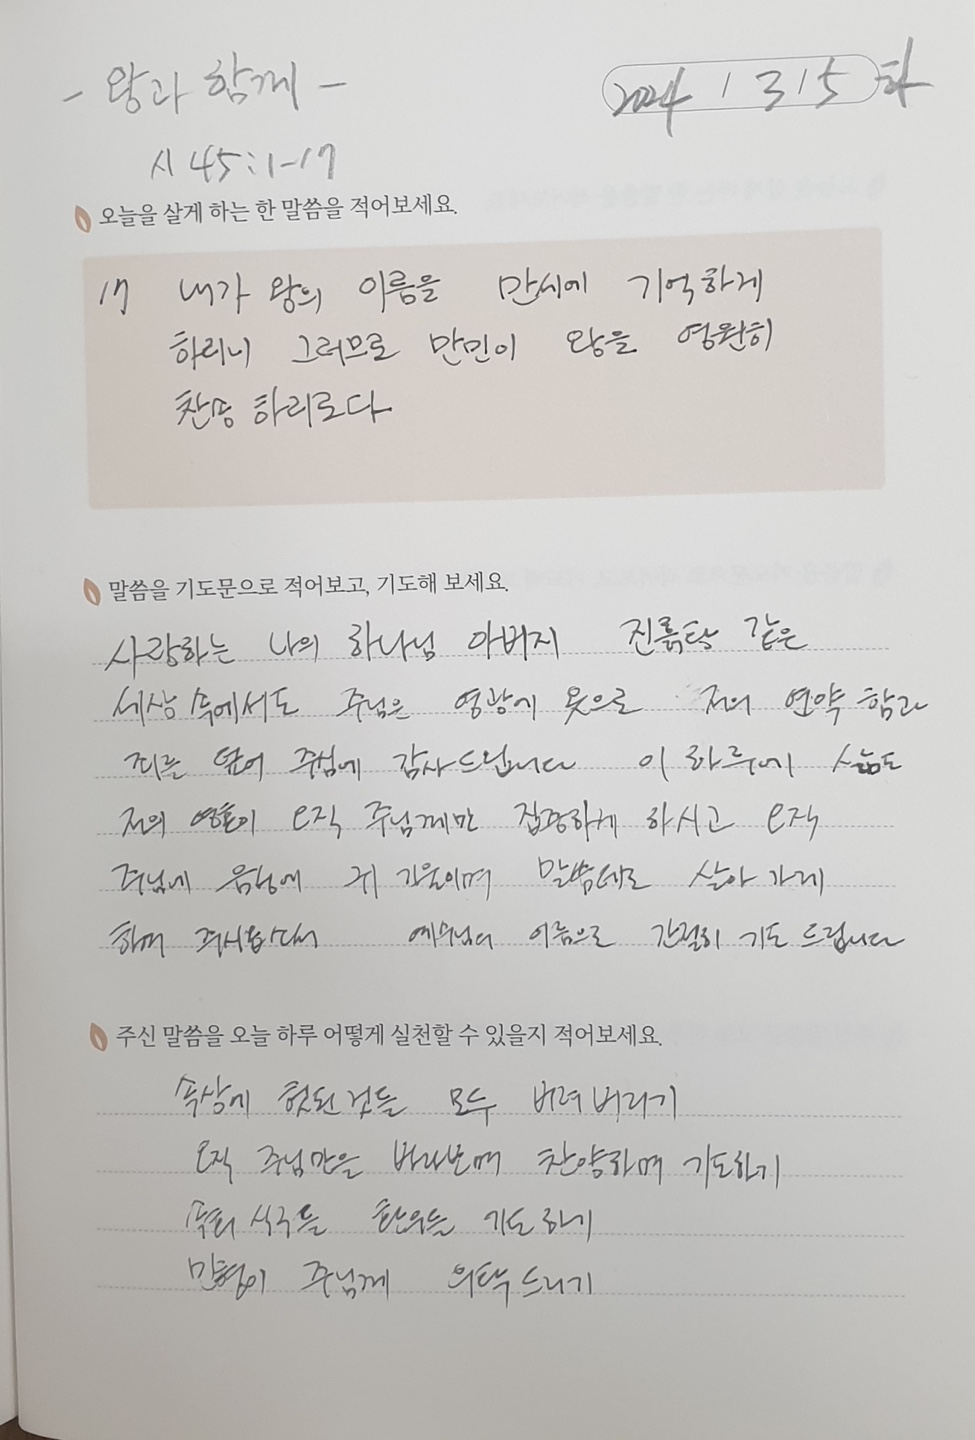 - 왕과 함께 -
2024 / 3 / 5 화
시 45:1-17
오늘을 살게 하는 한 말씀을 적어보세요.
17 내가 왕의 이름을 만세에 기억하게
하리니 그러므로 만민이 왕을 영원히
찬송 하리로다
말씀을 기도문으로 적어보고, 기도해 보세요.
사랑하는 나의 하나님 아버지 진흙탕 같은
세상 속에서도 주님은 영광에 옷으로 저의 연약 함과
죄를 덮어 주심에 감사드립니다 이 하루에 삶도
저의 영혼이 오직 주님께만 집중하게 하시고 오직
주님에 음성에 귀 기울이며 말씀데로 살아 가게
하여 주시옵소서 예수님의 이름으로 간절히 기도 드립니다
주신 말씀을 오늘 하루 어떻게 실천할 수 있을지 적어보세요.
속상에 헛된것들 모두 버려버리기
오직 주님만을 바라보며 찬양하며 기도하기
속회 식구들 환우들 기도하기
주님께 의탁드리기